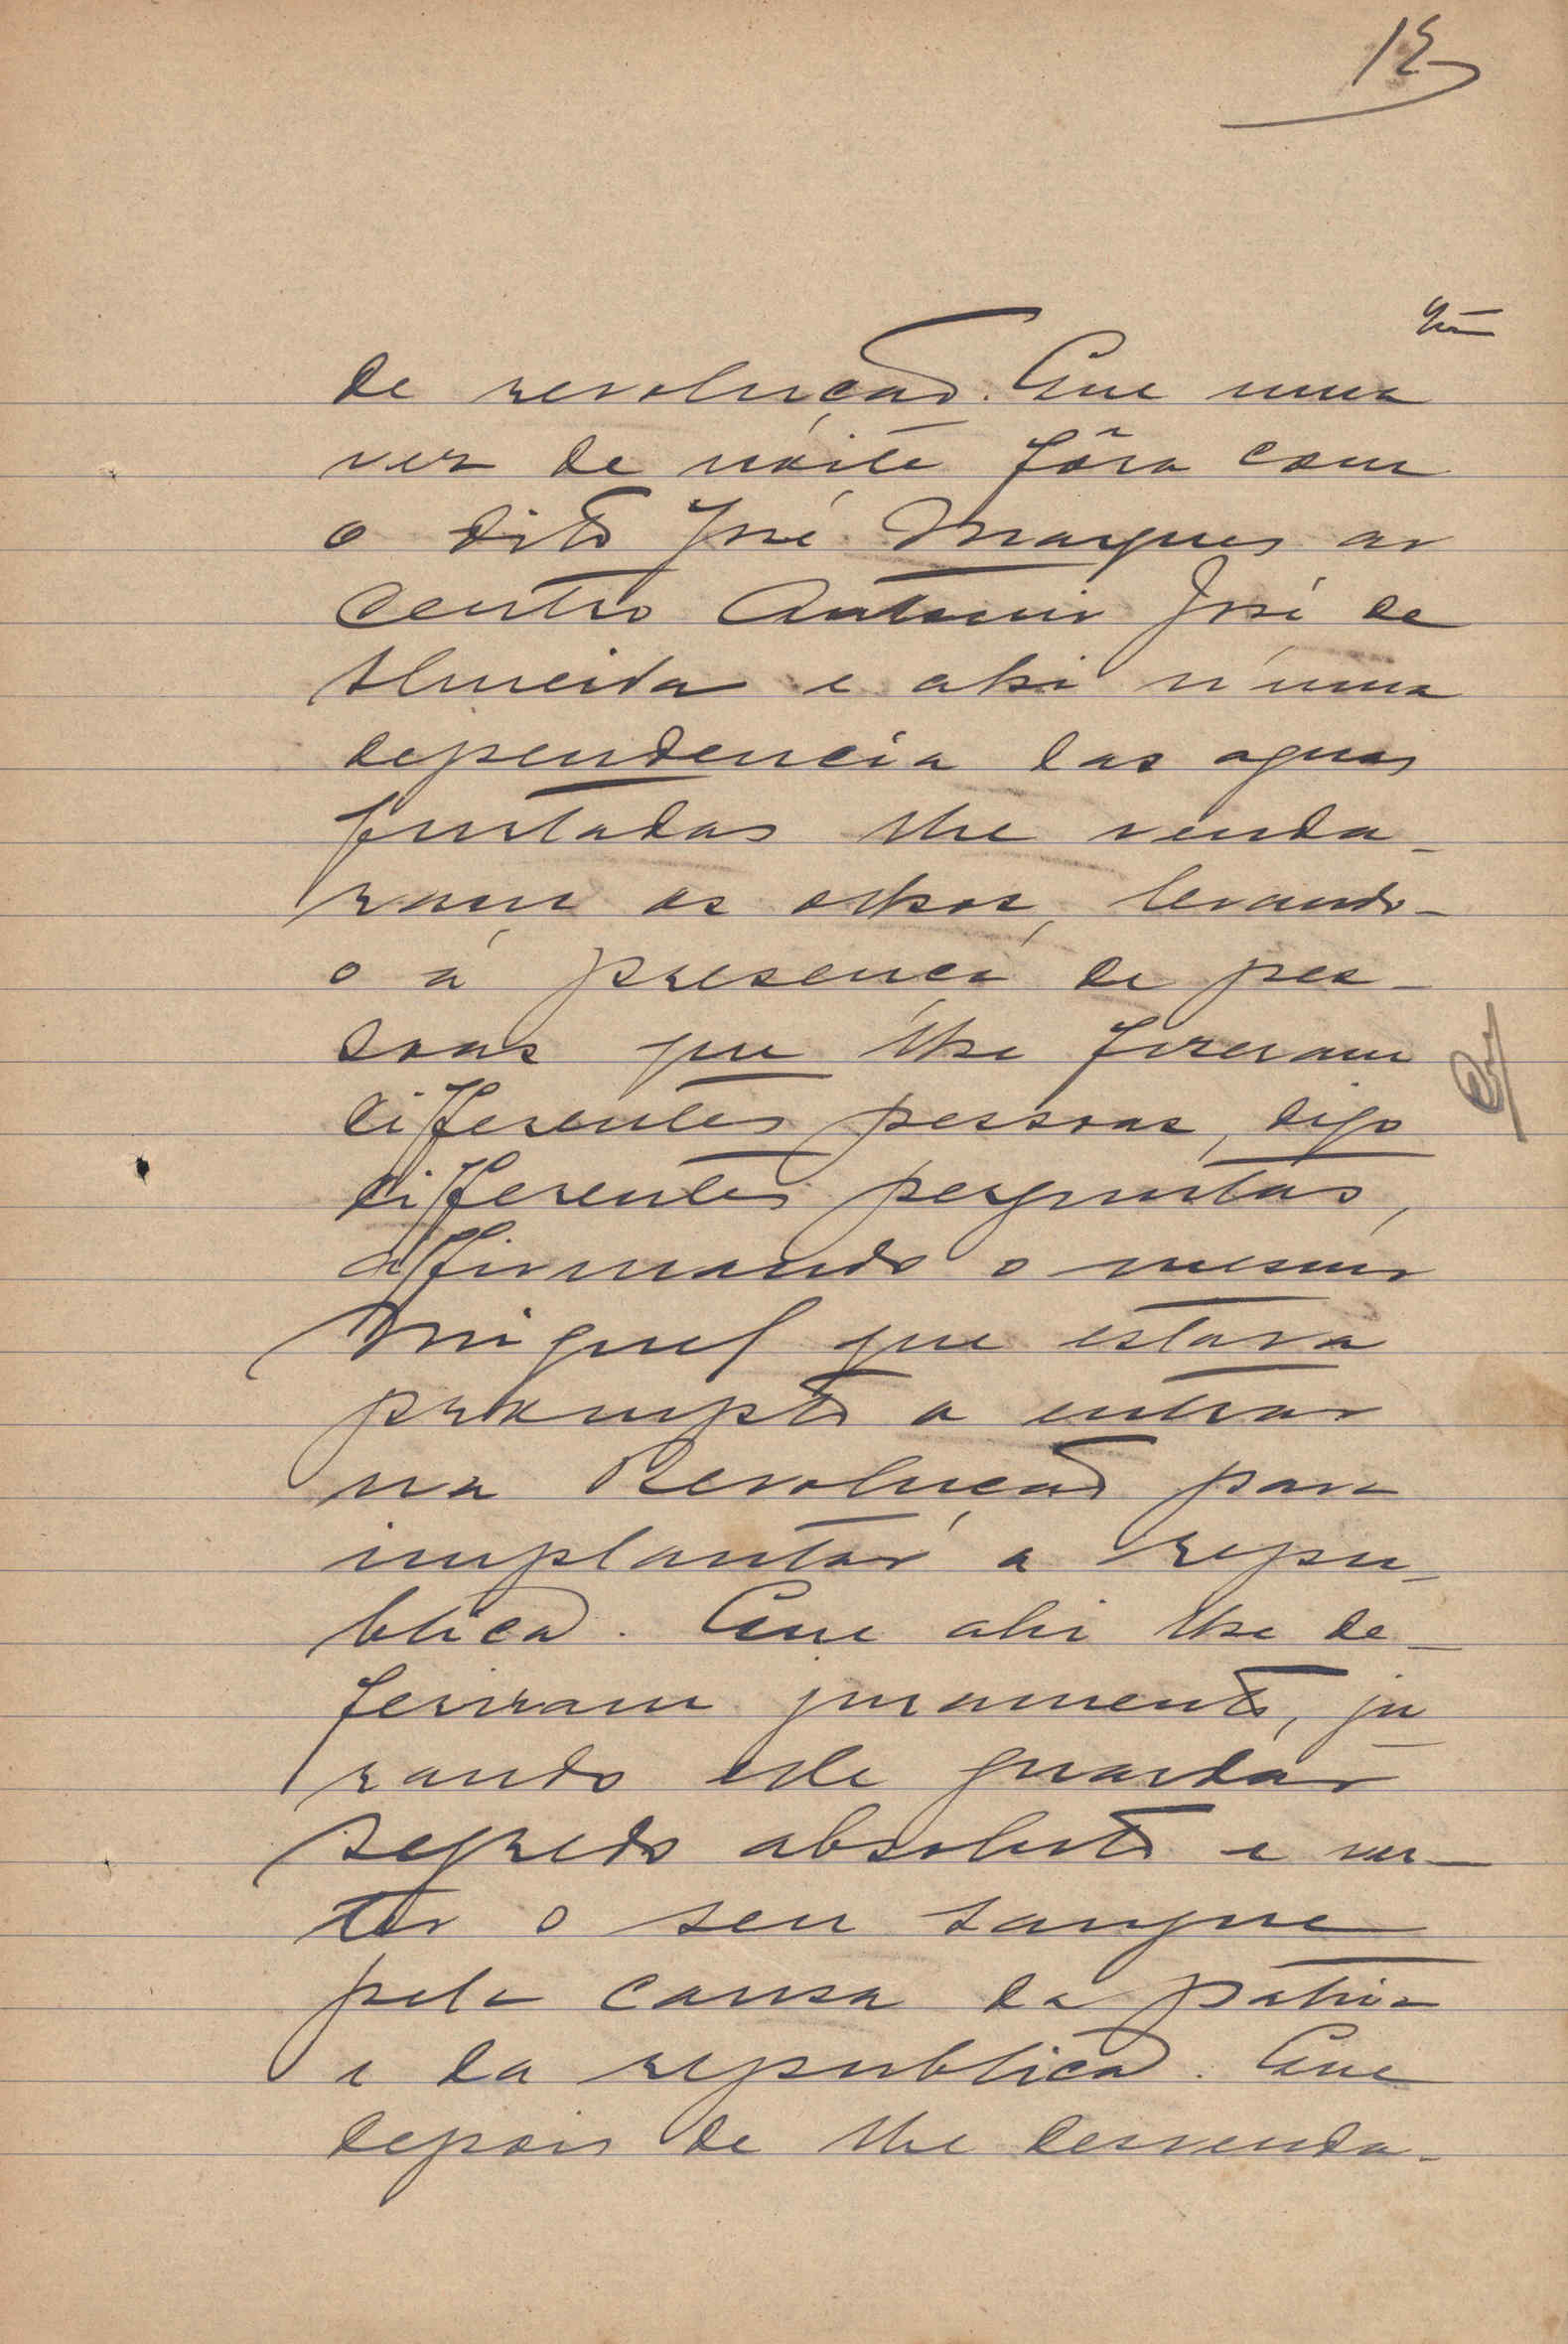 de revolução. Que uma
vez de noite fôra com
o dito José Marques ao
Centro Antonio José de
Almeida e ahi n'uma
dependencia das aguas
furtadas lhe venda-
ram os olhos, levando-
o á presença de pes-
soas que lhe fizeram
differentes pessoas, digo
differentes perguntas,
affirmando o mesmo
Miguel que estava
prompto a entrar
na Revolução para
implantar a repu-
blica. Que ahi lhe de-
feriram juramento, ju
rando elle guardar
segredo absoluto e ver-
ter o seu sangue
pela causa da patria
e da republica. Que
depois de lhe desvenda-